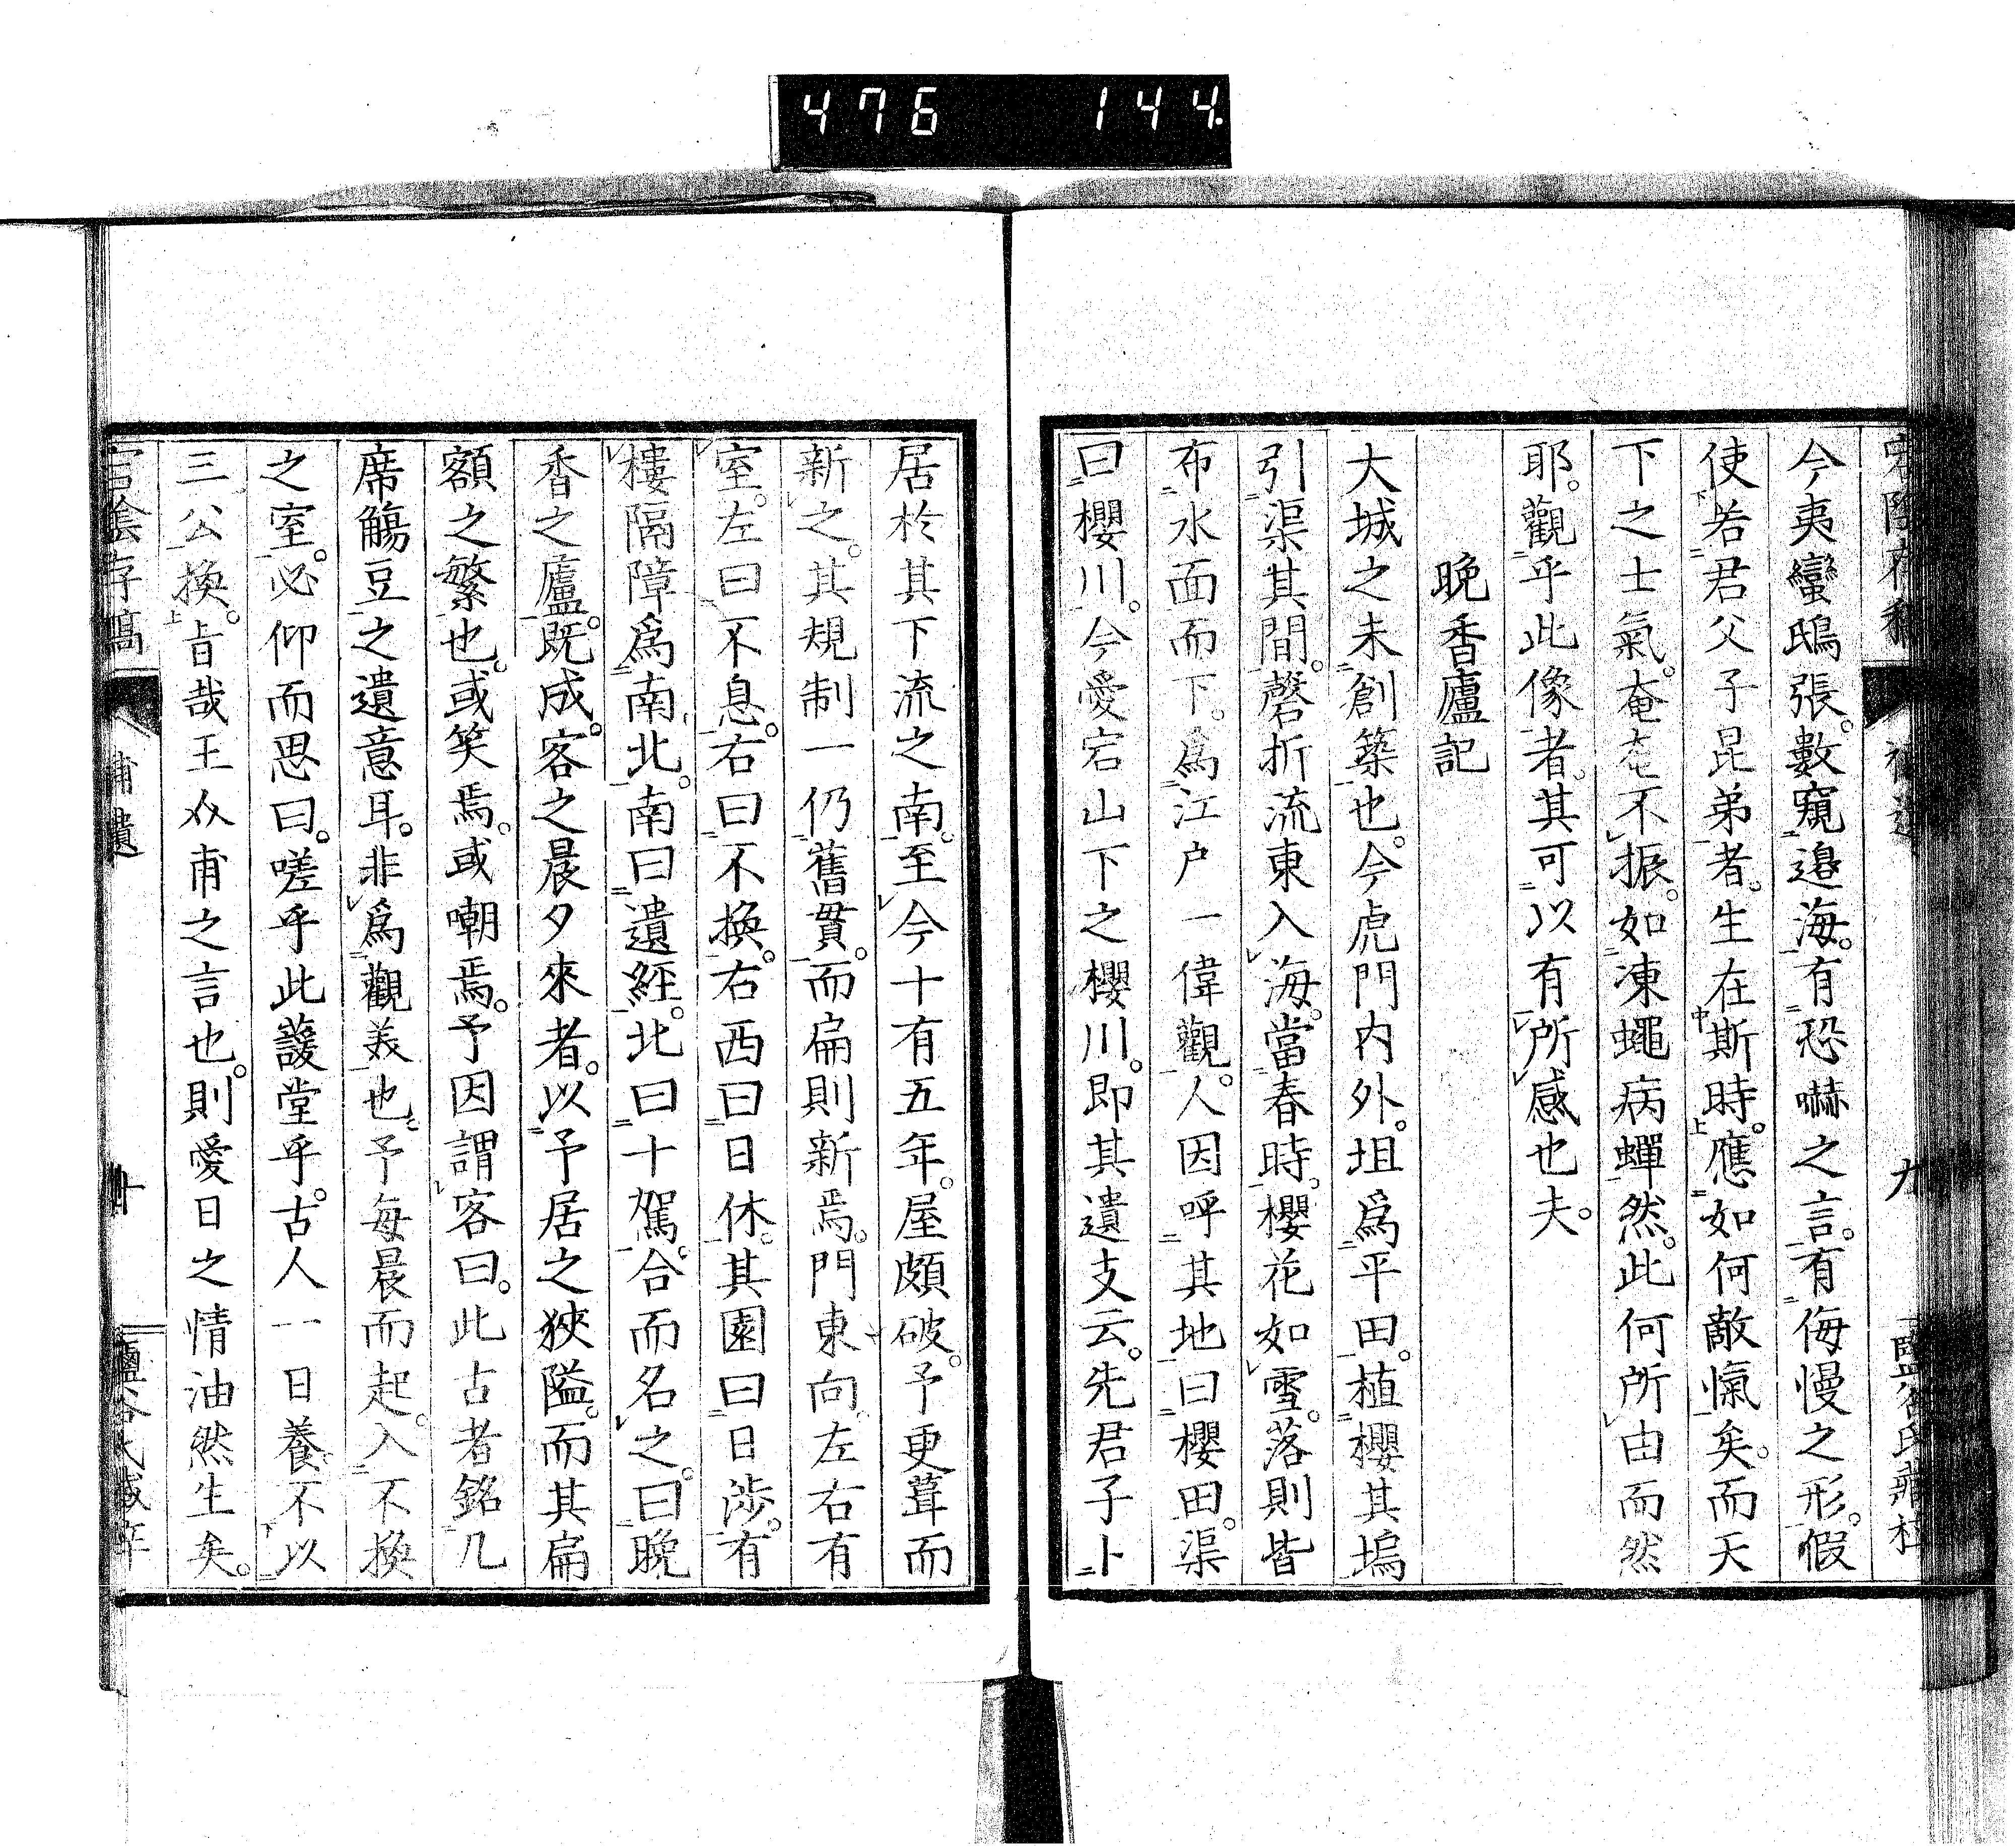 476 144
今夷蠻鴟張。數窺邉海。有恐嚇之言。有侮慢之形。假
使若君父子昆弟者。生在斯時。應如何敵愾矣。而天
下之士氣。奄奄不振。如凍蠅病蟬然。此何所由而然
耶。觀乎此像者。其可以有所感也夫。
晩香廬記
大城之未創築也。今虎門内外。坦爲平田。植櫻其塢
引渠其間。磬折流東入海。當春時。櫻花如雪。落則皆
布水面而下。爲江戸一偉觀。人因呼其地曰櫻田。渠
曰櫻川。今愛宕山下之櫻川。即其遺支云。先君子卜
居於其下流之南。至今十有五年。屋頗破。予更葺而
新之。其規制一仍舊貫。而扁則新焉。門東向左右有
室。左曰不息。右曰不換。右西曰日休。其園曰日渉。有
樓隔障爲南北。南曰遺經。北曰十駕。合而名之。曰晩
香之廬。既成。客之晨夕來者。以予居之狹隘。而其扁
額之繁也。或笑焉。或嘲焉。予因謂客曰。此古者銘几
席觴豆之遺意耳。非爲觀美也。予毎晨而起。入不換
之室。必仰而思曰。嗟乎此護堂乎。古人一日養。不以
三公換。旨哉王介甫之言也。則愛日之情油然生矣。
宕陰存稿
補遺
十